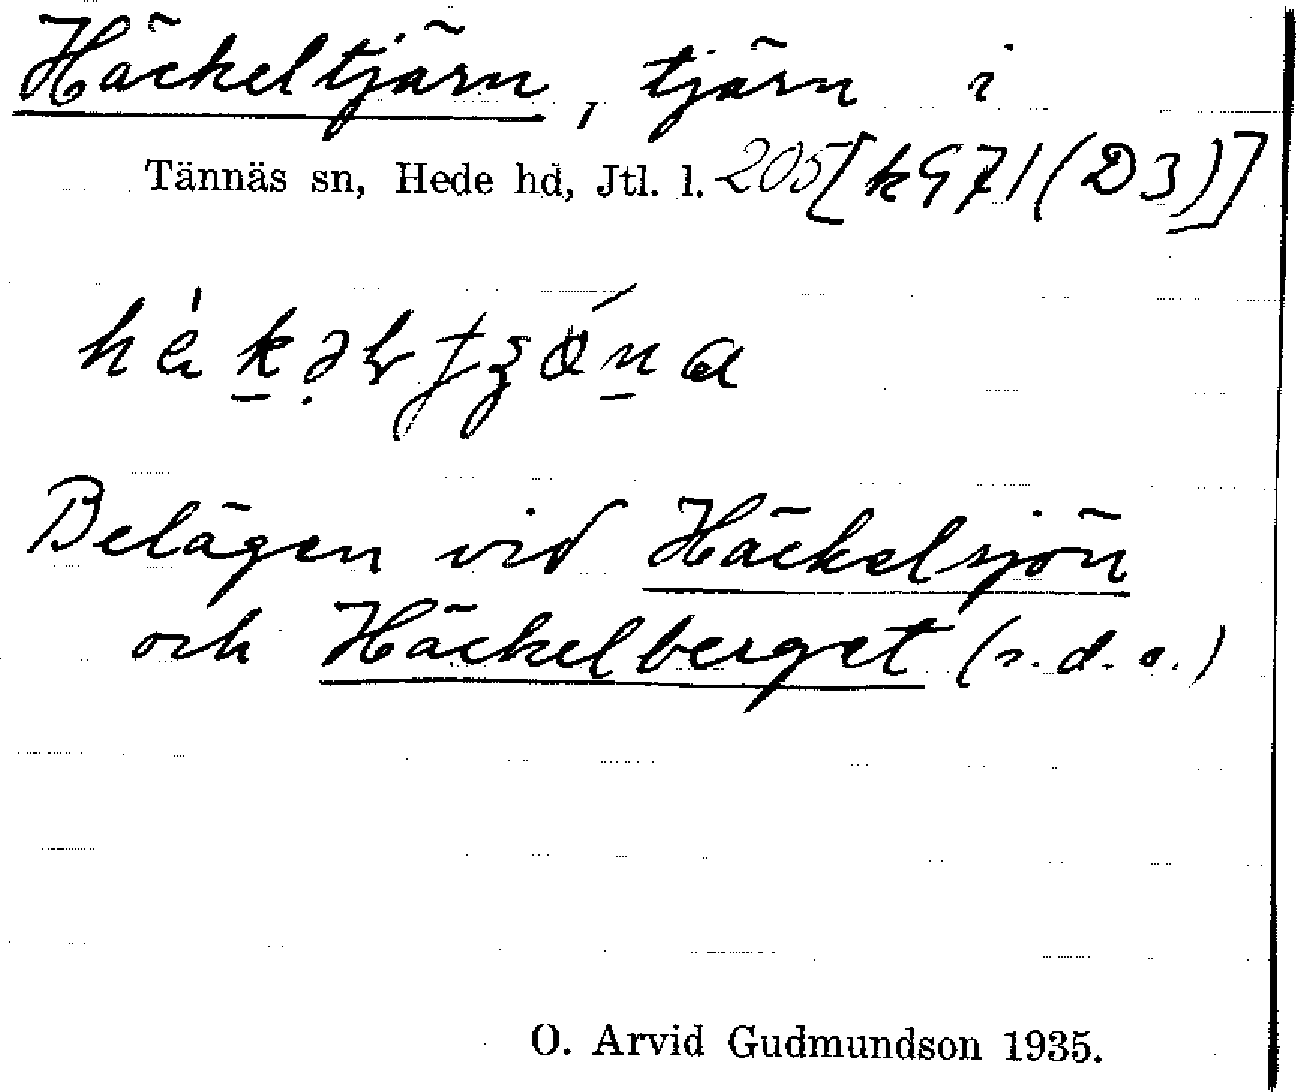 Häckeltjärn, tjärn i
Tännäs sn, Hede hd, Jtl. l. 205 [k971 (D3)]
Belägen vid Häckelsjön
och Häckelberget (s.d.o.)
O. Arvid Gudmundson 1935.